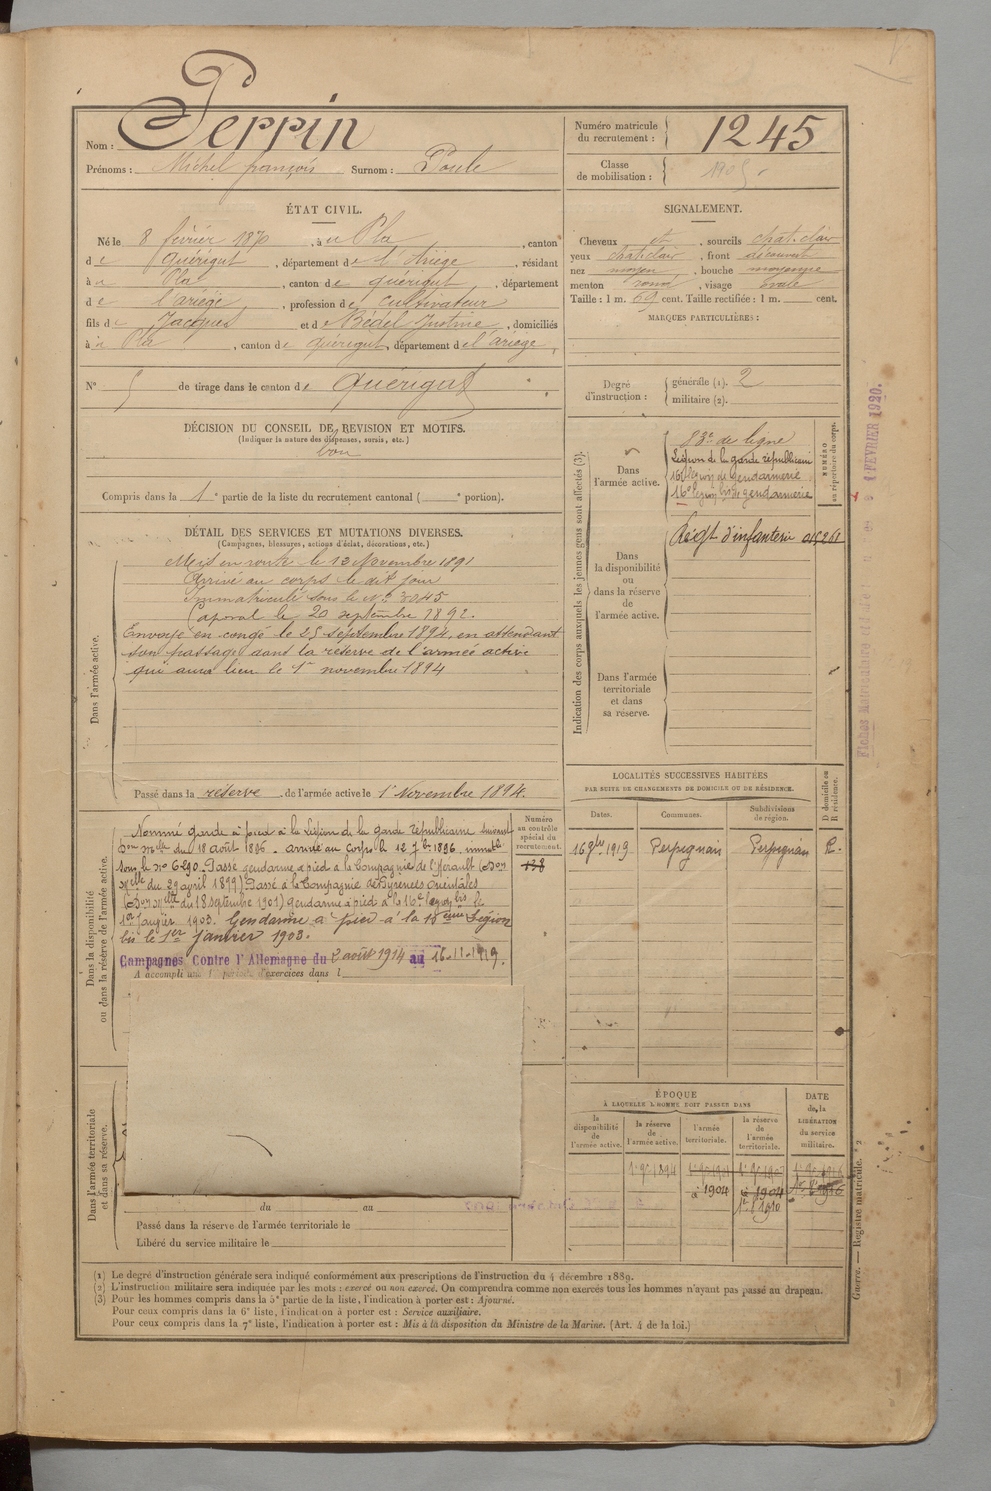 Nom : Perrin
Prénoms : Michel françois Surnom : Poule
Numéro matricule du recrutement : 1245
Classe de mobilisation : 1905
ÉTAT CIVIL.
Né le 8 février 1870, à u Pla, canton
de Quérigut, département de l'Ariège, résidant
à u Pla, canton de quérigut, département
de l'ariège, profession de cultivateur
fils de Jacques et de Bédel Justine, domiciliés
à u Pla, canton de quérigut, département de l'ariège,
N° 5 de tirage dans le canton de Quérigut
DÉCISION DU CONSEIL DE REVISION ET MOTIFS.
(Indiquer la nature des dispenses, sursis, etc.)
bon
Compris dans la 1e partie de la liste du recrutement cantonal ( e portion).
DÉTAIL DES SERVICES ET MUTATIONS DIVERSES.
(Campagnes, blessures, actions d'éclat, décorations, etc.)
Dans l'armée active.
Mis en route le 12 Novembre 1891
Arrivé au corps le dit jour
Immatriculé sous le N° 3045
Caporal le 20 septembre 1892.
Envoyé en congé le 25 septembre 1894, en attendant
son passage dans la réserve de l'armée active
qui aura lieu le 1er novembre 1894
Passé dans la réserve de l'armée active le 1er Novembre 1894.
Dans la disponibilité
ou dans la réserve de l'armée active.
Nommé garde à pied à la Légion de la garde républicaine suivant
Don Melle du 18 août 1896. arrivé au corps le 12 7bre 1896, immatlé
sous le no 6290. Passé gendarme à pied à la Compagnie de l'Hérault (Don
Melle du 29 avril 1899) Passé à la Compagnie des Pyrénées Orientales
(Don Melle du 18 septembre 1901) gendarme à pied à la 16e légion bis le
1er Janvier 1903. Gendarme à pied à la 15eme Légion
bis le 1er janvier 1903.
Campagnes Contre l'Allemagne du 2 août 1914 au 16-11-1919.
A accompli une 1re période d'exercices dans l
Numéro
au contrôle
spécial du
recrutement.
138
Dans l'armée territoriale
et dans sa réserve.
du au
Passé dans la réserve de l'armée territoriale le
Libéré du service militaire le
SIGNALEMENT.
Cheveux et, sourcils chat.clair
yeux chat.clair, front découvert
nez moyen, bouche moyenne
menton rond, visage ovale
Taille : 1 m. 69 cent. Taille rectifiée : 1 m. cent.
MARQUES PARTICULIÈRES :
Degré d'instruction : générale (1). 2
militaire (2).
Indication des corps auxquels les jeunes gens sont affectés (3).
NUMÉRO
au répertoire du corps.
Dans
l'armée active.
83e de ligne
Légion de la garde républicaine
16e légion de gendarmerie
16e légion bis de gendarmerie
Dans
la disponibilité
ou
dans la réserve
de
l'armée active.
Régt d'infanterie
Dans l'armée
territoriale
et dans
sa réserve.
Fiches Matriculaire
FÉVRIER 1920.
LOCALITÉS SUCCESSIVES HABITÉES
PAR SUITE DE CHANGEMENTS DE DOMICILE OU DE RÉSIDENCE.
D domicile ou
R résidence.
Dates. Communes. Subdivisions de région.
16 9bre 1919 Perpignan Perpignan R.
ÉPOQUE
À LAQUELLE L'HOMME DOIT PASSER DANS
DATE
de la
LIBÉRATION
du service
militaire.
la disponibilité de l'armée active.
la réserve de l'armée active.
l'armée territoriale.
la réserve de l'armée territoriale.
1er 9bre 1894
1904 1904
1910
Guerre. — Registre matricule. * 2
(1) Le degré d'instruction générale sera indiqué conformément aux prescriptions de l'instruction du 4 décembre 1889.
(2) L'instruction militaire sera indiquée par les mots : exercé ou non exercé. On comprendra comme non exercés tous les hommes n'ayant pas passé au drapeau.
(3) Pour les hommes compris dans la 5e partie de la liste, l'indication à porter est : Ajourné.
Pour ceux compris dans la 6e liste, l'indication à porter est : Service auxiliaire.
Pour ceux compris dans la 7e liste, l'indication à porter est : Mis à la disposition du Ministre de la Marine. (Art. 4 de la loi.)